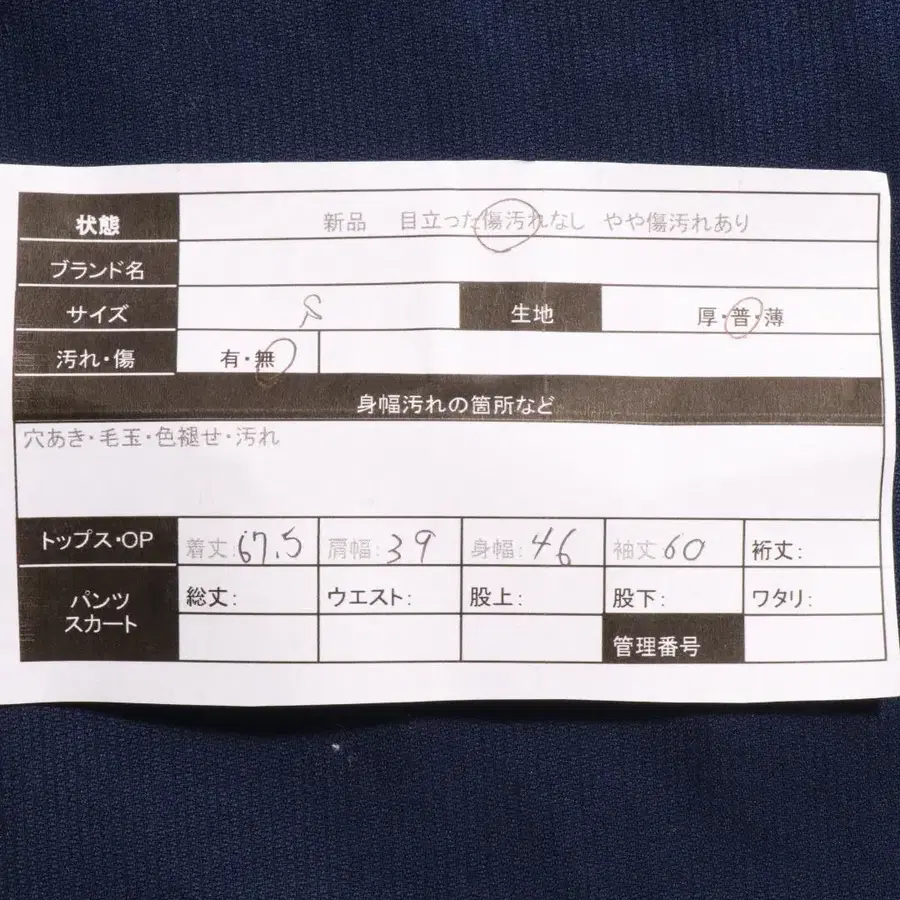 状態 新品 目立った傷汚れなし やや傷汚れあり
ブランド名
サイズ S 生地 厚・普・薄
汚れ・傷 有・無
身幅汚れの箇所など
穴あき・毛玉・色褪せ・汚れ
トップス・OP 着丈:67.5 肩幅:39 身幅:46 袖丈60 裄丈:
パンツ
スカート
総丈: ウエスト: 股上: 股下: ワタリ:
管理番号